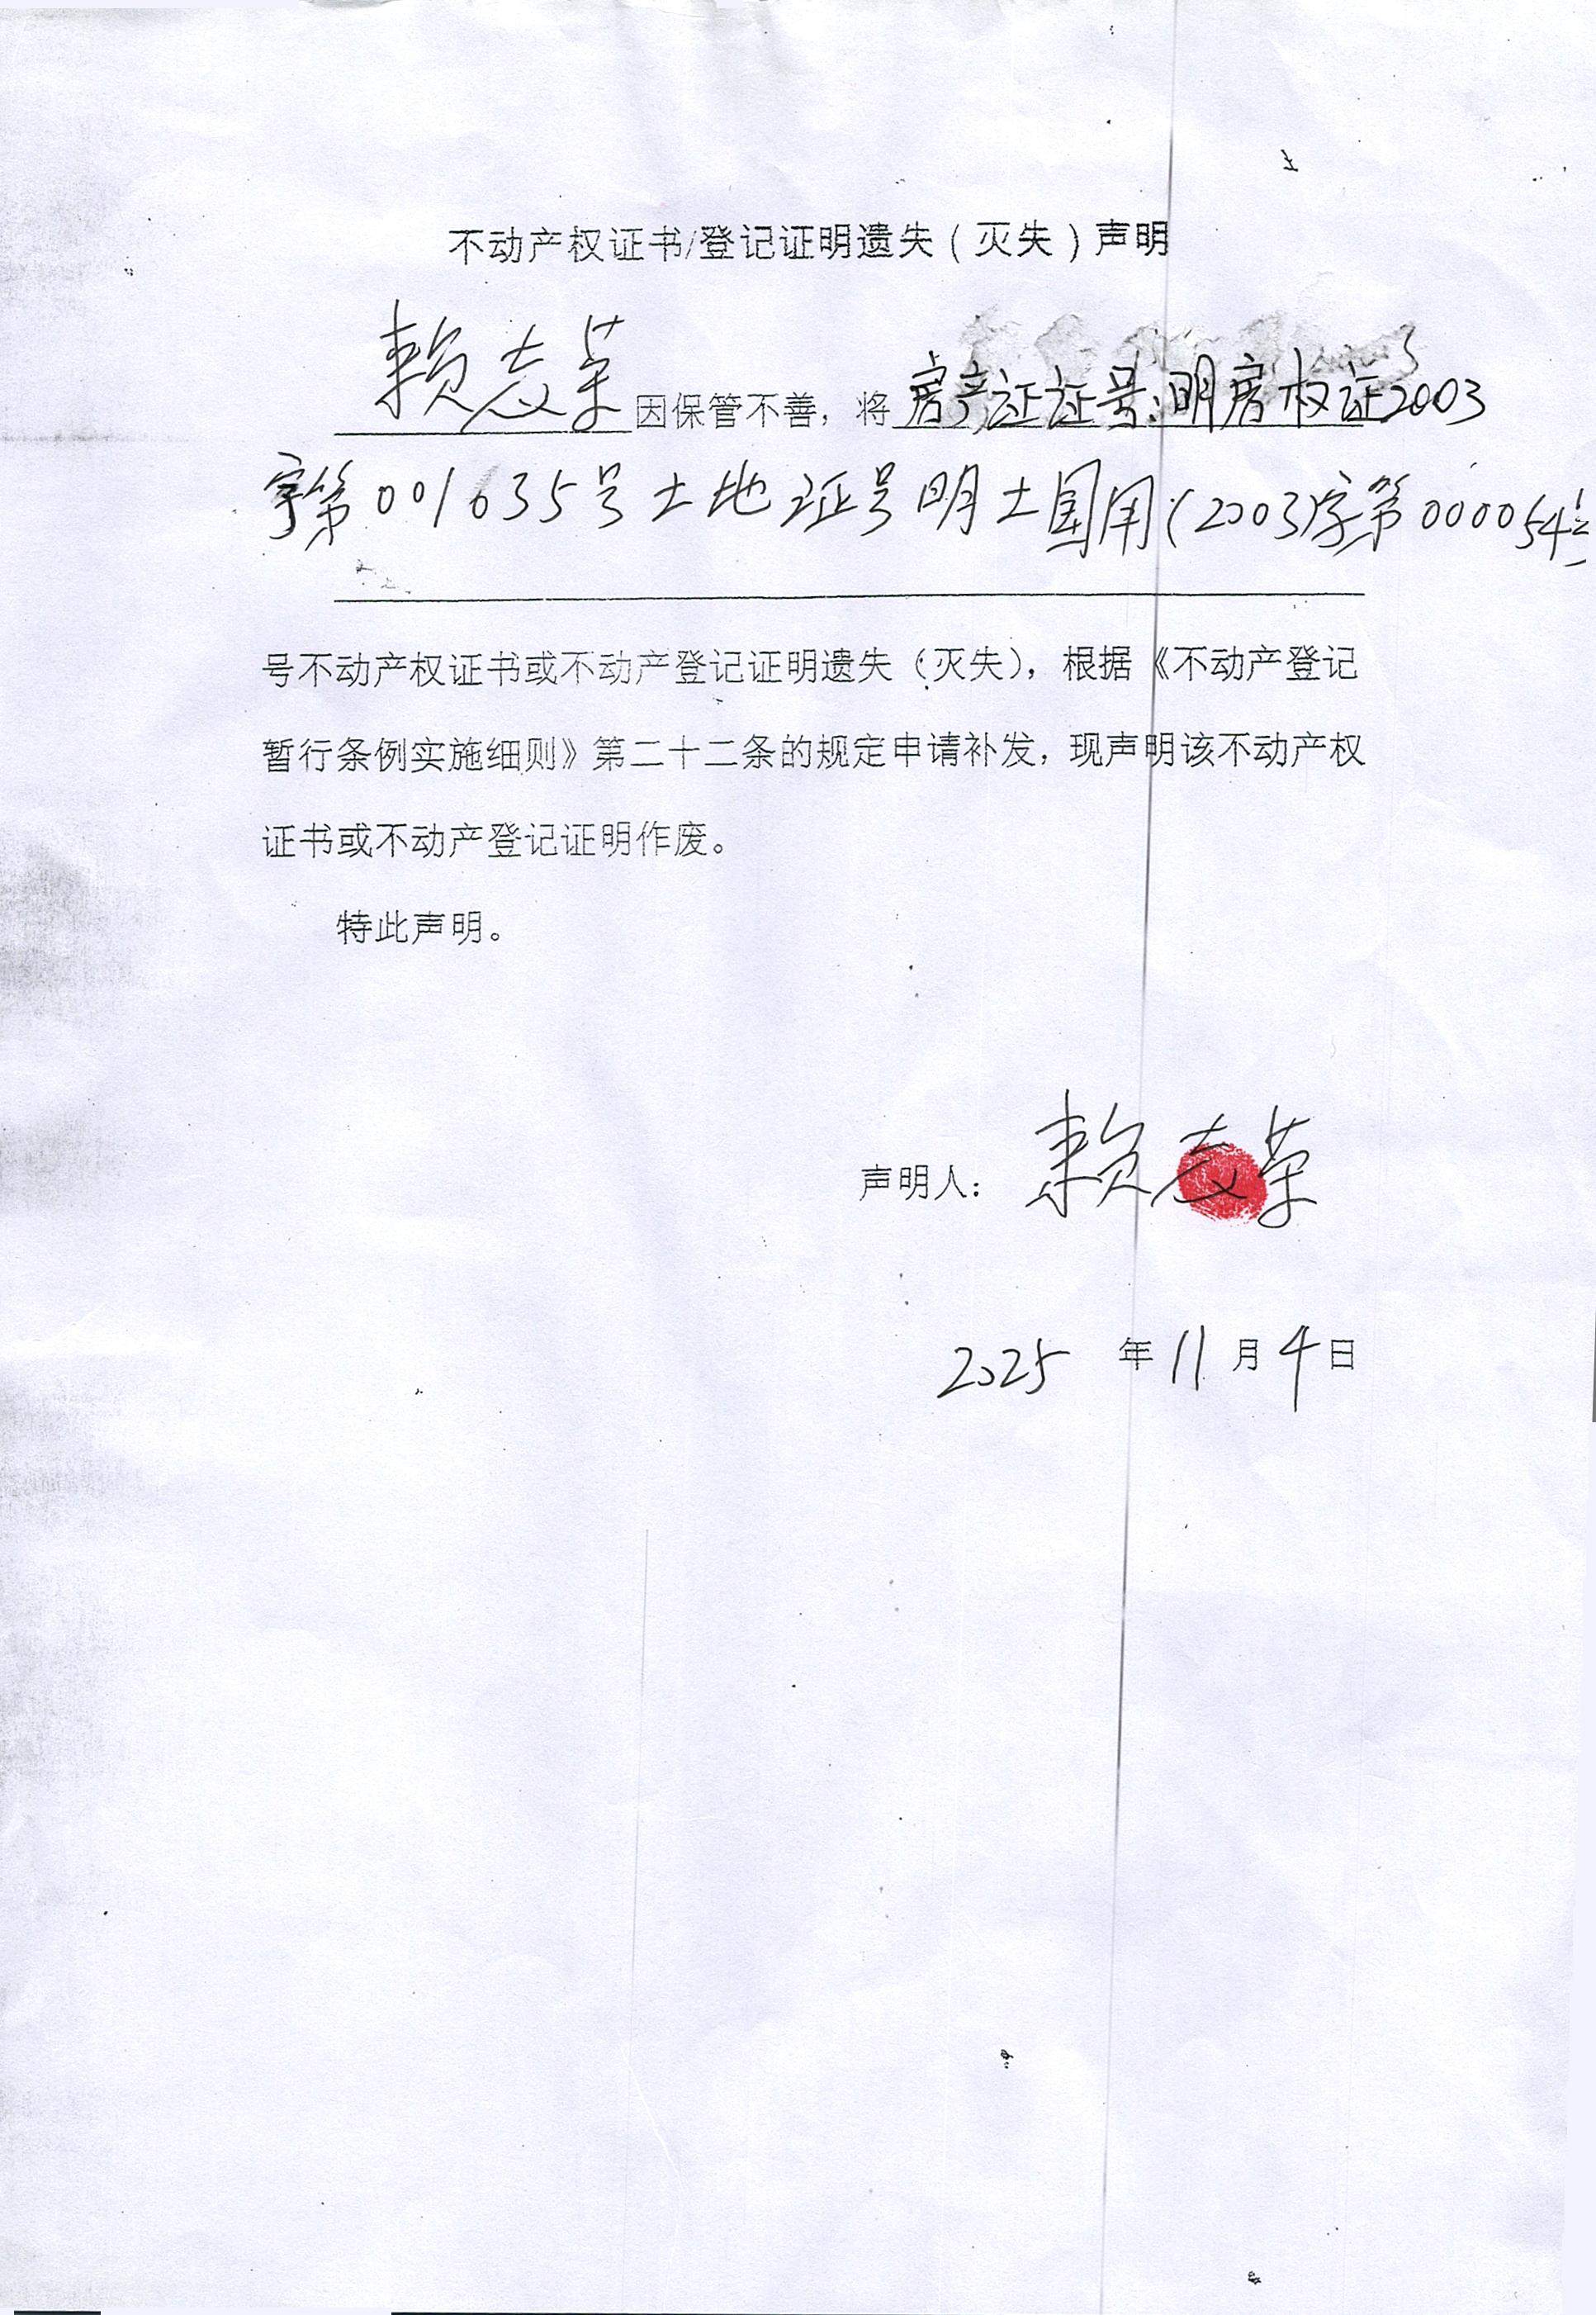 不动产权证书/登记证明遗失（灭失）声明
赖志荣因保管不善，将房产证证号:明房权证2003
字第001635号土地证号明土国用(2003)字第000054
号不动产权证书或不动产登记证明遗失（灭失），根据《不动产登记
暂行条例实施细则》第二十二条的规定申请补发，现声明该不动产权
证书或不动产登记证明作废。
特此声明。
声明人：赖志荣
2025 年 11 月 4 日